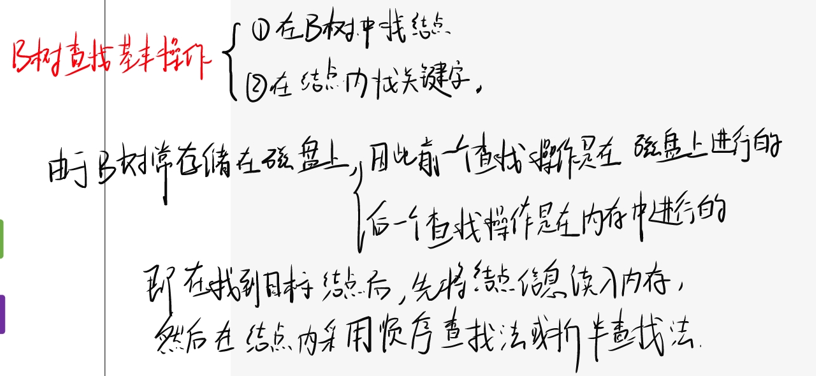 B树查找基本操作
①在B树中找结点
②在结点内找关键字.
由于B树常存储在磁盘上,因此前一个查找操作是在磁盘上进行的
后一个查找操作是在内存中进行的
即在找到目标结点后,先将结点信息读入内存,
然后在结点内采用顺序查找法或折半查找法.